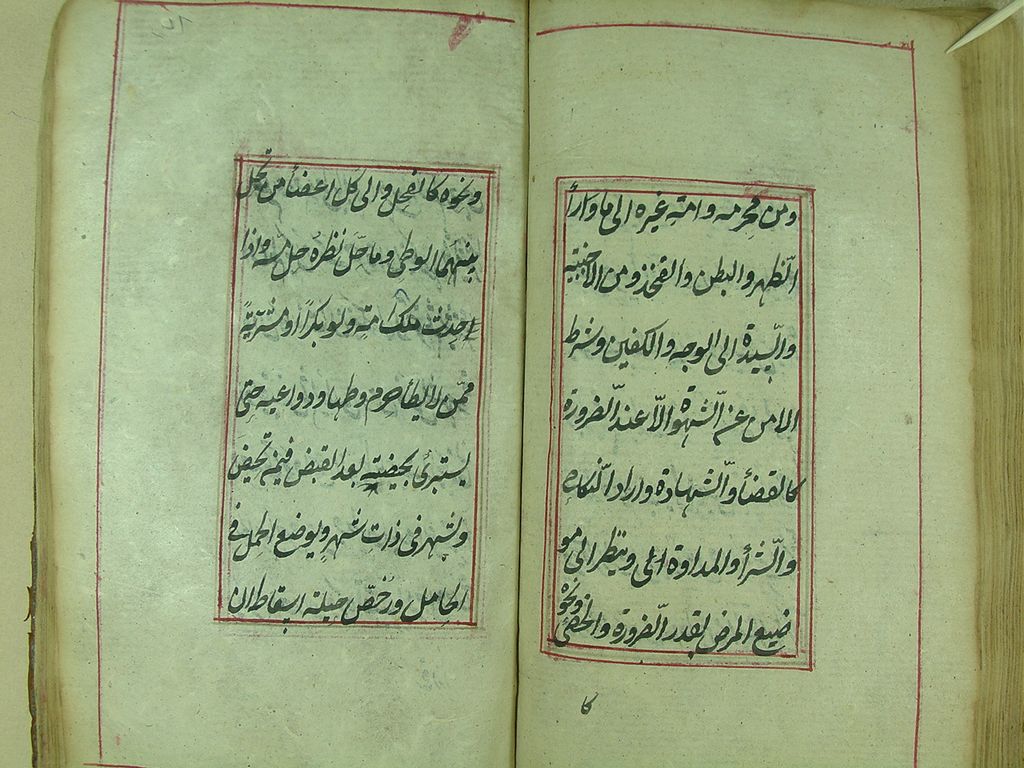 ومن محرمه وامة غيره الى ما وراء
الظهر والبطن والفخذ ومن الاجنبية
والسيدة الى الوجه والكفين وشرط
الامن عن الشهوة والا عند الضرورة
كالقضاء والشهادة وارادة النكاح
والشراء والمداوة الى وينظر الى مو
ضيع المرض بقدر الضرورة والخصى
ونحوه
كا
ونحوه كالفحل والى كل اعضاء من تحل
بينهما الوطى وما حل نظره حل مسه واذا
احدث ملك امة ولو بكرًا او مشرية
ممن لا يطأ حرم وطيها ودواعيه حتى
يستبرئ بحيضة بعد القبض فيمن تحيض
وبشهر فى ذات شهر وبوضع الحمل فى
الحامل ورخص حيلة اسقاط ان